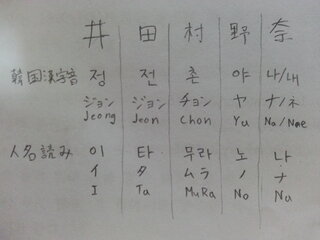 井 田 村 野 奈
韓国漢字音 정 전 촌 야 나/내
ジョン ジョン チョン ヤ ナ/ネ
Jeong Jeon Chon Yu Na/Nae
人名読み 이 타 무라 노 나
イ タ ムラ ノ ナ
I Ta MuRa No Na